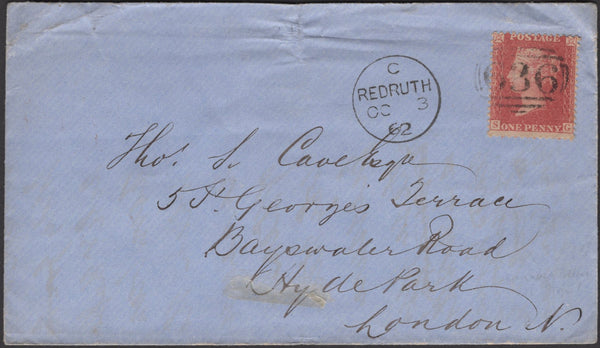 C
REDRUTH
OC 3
62
POSTAGE
636
S ONE PENNY G
Thos. S. Cave Esqre
5 St. George's Terrace
Bayswater Road
Hyde Park
London N.